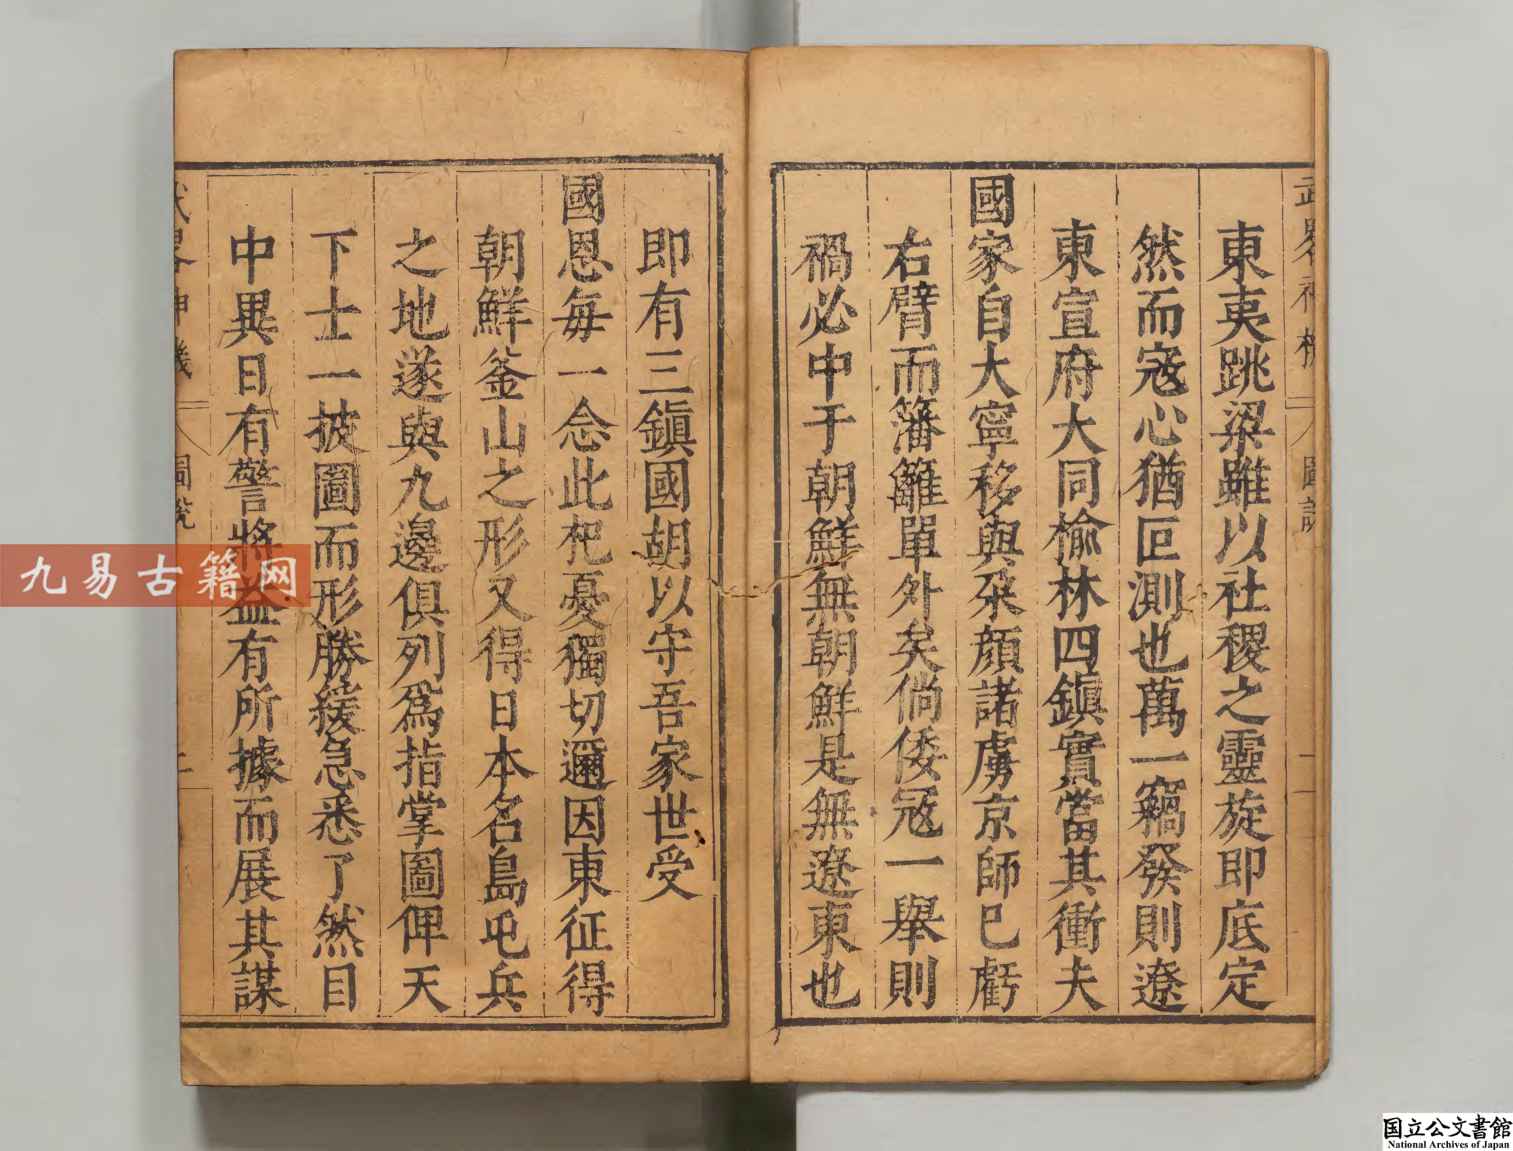 東夷跳梁雖以社稷之靈旋即底定
然而寇心猶叵測也萬一竊發則遼
東宣府大同榆林四鎮實當其衝夫
國家自大寧移與朶顏諸虜京師已虧
右臂而藩籬單外矣倘倭寇一舉則
禍必中于朝鮮無朝鮮是無遼東也
即有三鎮國胡以守吾家世受
國恩每一念此杞憂獨切邇因東征得
朝鮮釜山之形又得日本名島屯兵
之地遂與九邊俱列爲指掌圖俾天
下士一披圖而形勝緩急悉了然目
中異日有警將益有所據而展其謀
武畧神機
圖說
九易古籍网
国立公文書館
National Archives of Japan